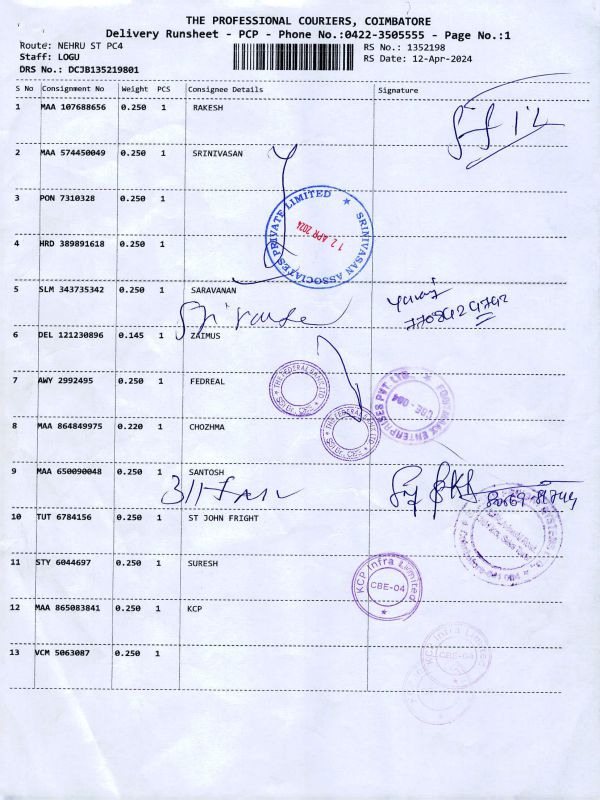 THE PROFESSIONAL COURIERS, COIMBATORE
Delivery Runsheet - PCP - Phone No.:0422-3505555 - Page No.:1
Route: NEHRU ST PC4 RS No.: 1352198
Staff: LOGU RS Date: 12-Apr-2024
DRS No.: DCJB135219801
S No Consignment No Weight PCS Consignee Details Signature
1 MAA 107688656 0.250 1 RAKESH
2 MAA 574450049 0.250 1 SRINIVASAN
3 PON 7310328 0.250 1
SRINIVASAN ASSOCIATES PRIVATE LIMITED
12 APR 2024
4 HRD 389891618 0.250 1
5 SLM 343735342 0.250 1 SARAVANAN
6 DEL 121230896 0.145 1 ZAIMUS
7 AWY 2992495 0.250 1 FEDREAL
THE FEDERAL BANK LTD
THE FEDERAL BANK LTD
ENTERPRISES PVT LTD
CBE - 004
8 MAA 864849975 0.220 1 CHOZHMA
9 MAA 650090048 0.250 1 SANTOSH
10 TUT 6784156 0.250 1 ST JOHN FRIGHT
11 STY 6044697 0.250 1 SURESH
KCP Infra Limited
CBE-04
12 MAA 865083841 0.250 1 KCP
13 VCM 5063087 0.250 1
KCP Infra Limited
CBE-04